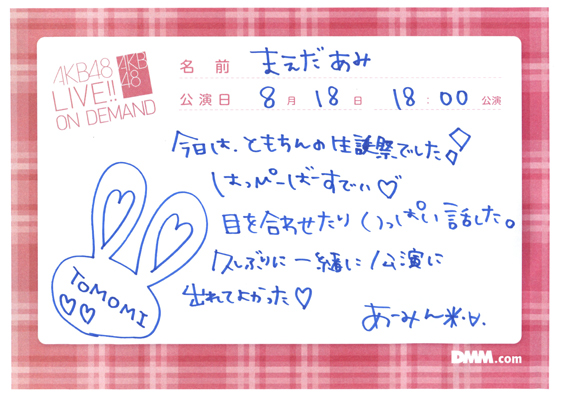 AKB48
LIVE!!
ON DEMAND
AKB
48
名 前 まえだあみ
公演日 8月18日 18:00公演
今日は、ともちんの生誕祭でした!
はっぴーばーすでぃ♡
目を合わせたりいっぱい話した。
久しぶりに一緒に公演に
出れてよかった♡
TOMOMI
♡♡
あーみん
DMM.com